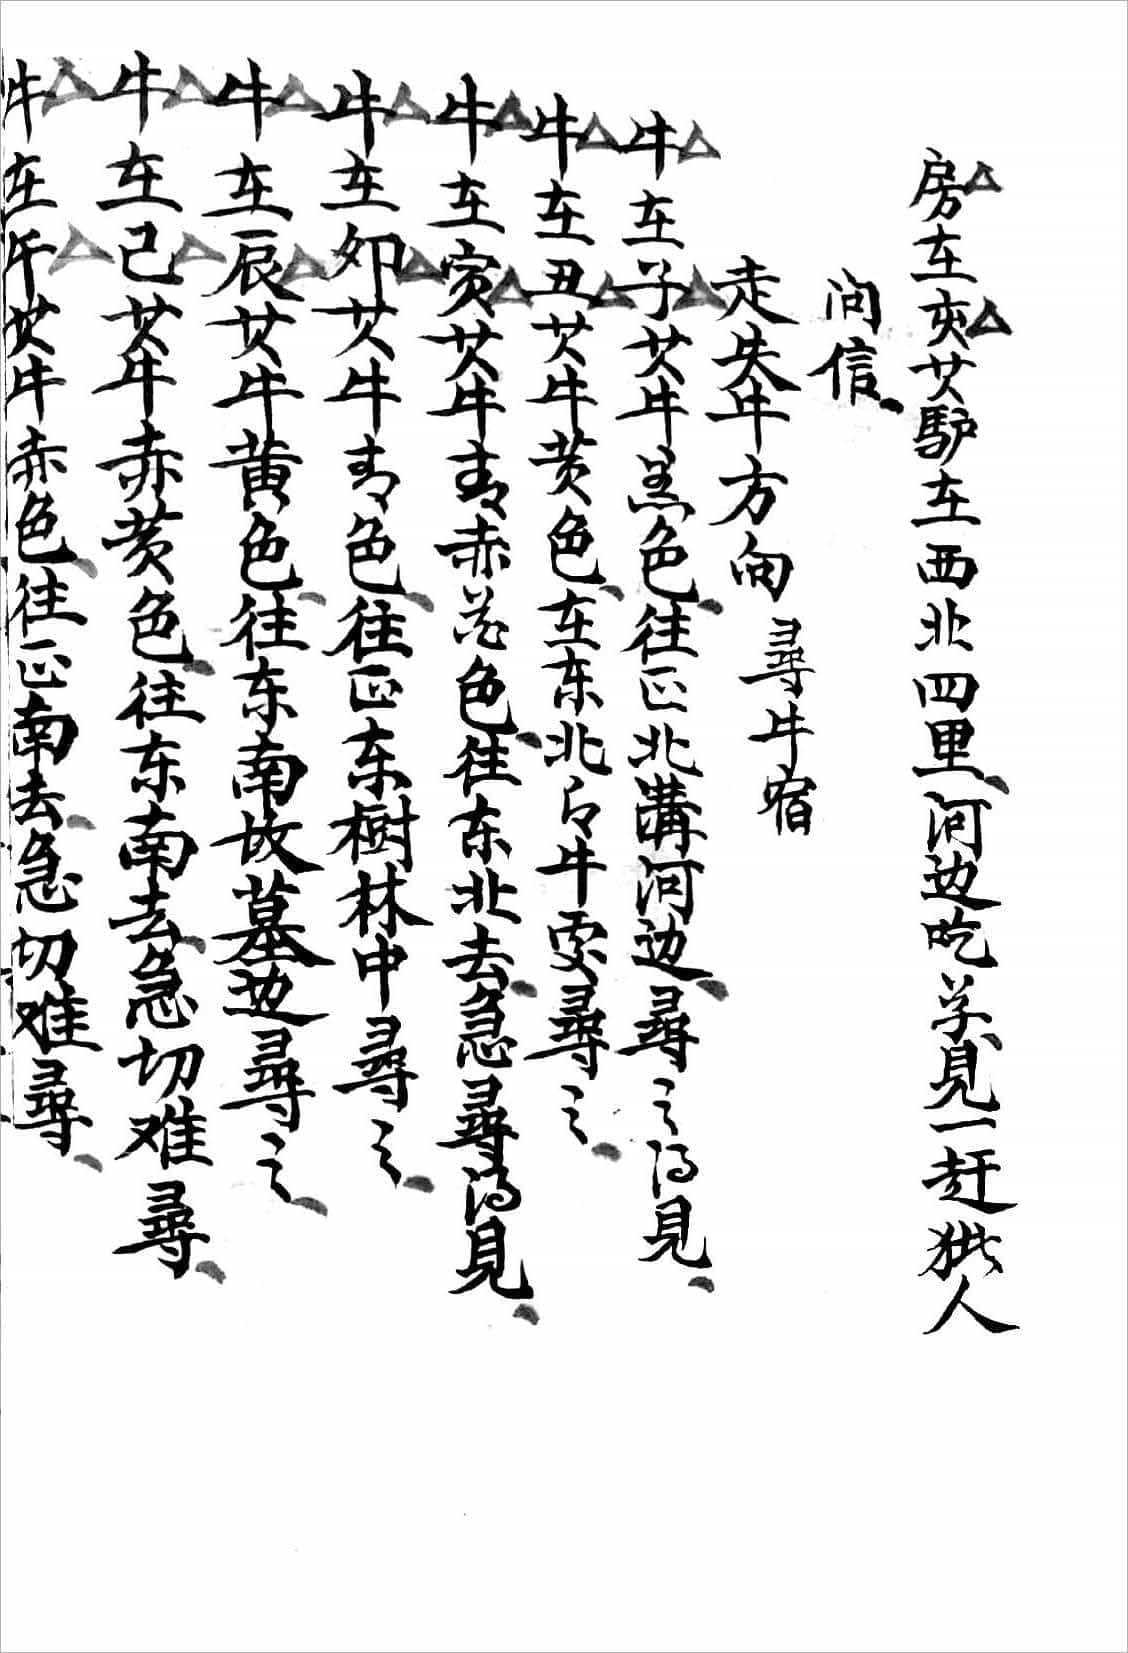 房在亥其驴在西北四里河边吃草見一赶猪人
问信
走失牛方向 尋牛宿
牛在子其牛黑色往正北溝河边尋之得見
牛在丑其牛黄色在东北卜牛尋之
牛在寅其牛青赤花色往东北去急尋得見
牛在卯其牛青色往正东樹林中尋之
牛在辰其牛黄色往东南故墓边尋之
牛在巳其牛赤黄色往东南去急切难尋
牛在午其牛赤色往正南去急切难尋